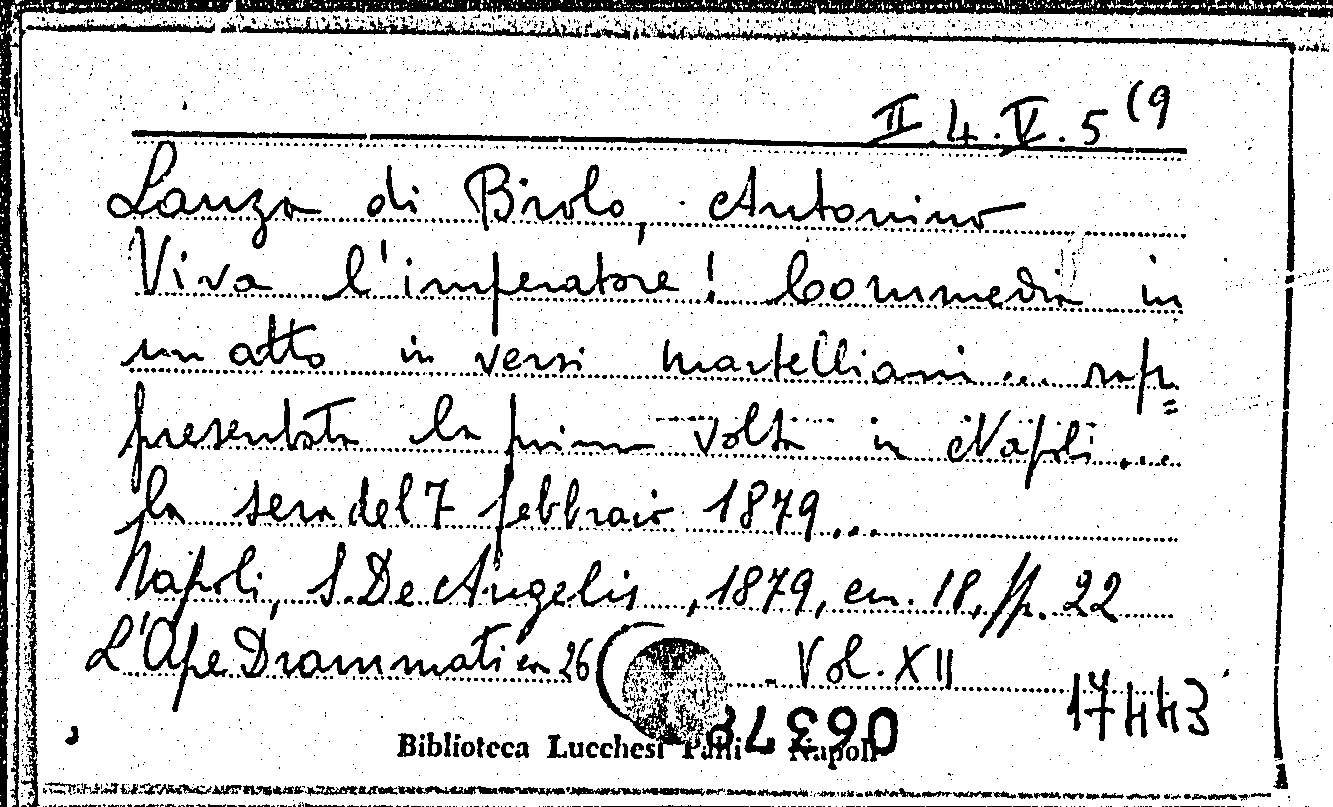 II.4.V.5(9
Lanza di Brolo, Antonino
Viva l'imperatore! Commedia in
un atto in versi martelliani... rap=
presentata la prima volta in Napoli...
la sera del 7 febbraio 1879...
Napoli, S. De Angelis, 1879, cm. 18, pp. 22
L'Ape Drammatica 26 Vol. XII
17443
Biblioteca Lucchesi Palli Napoli